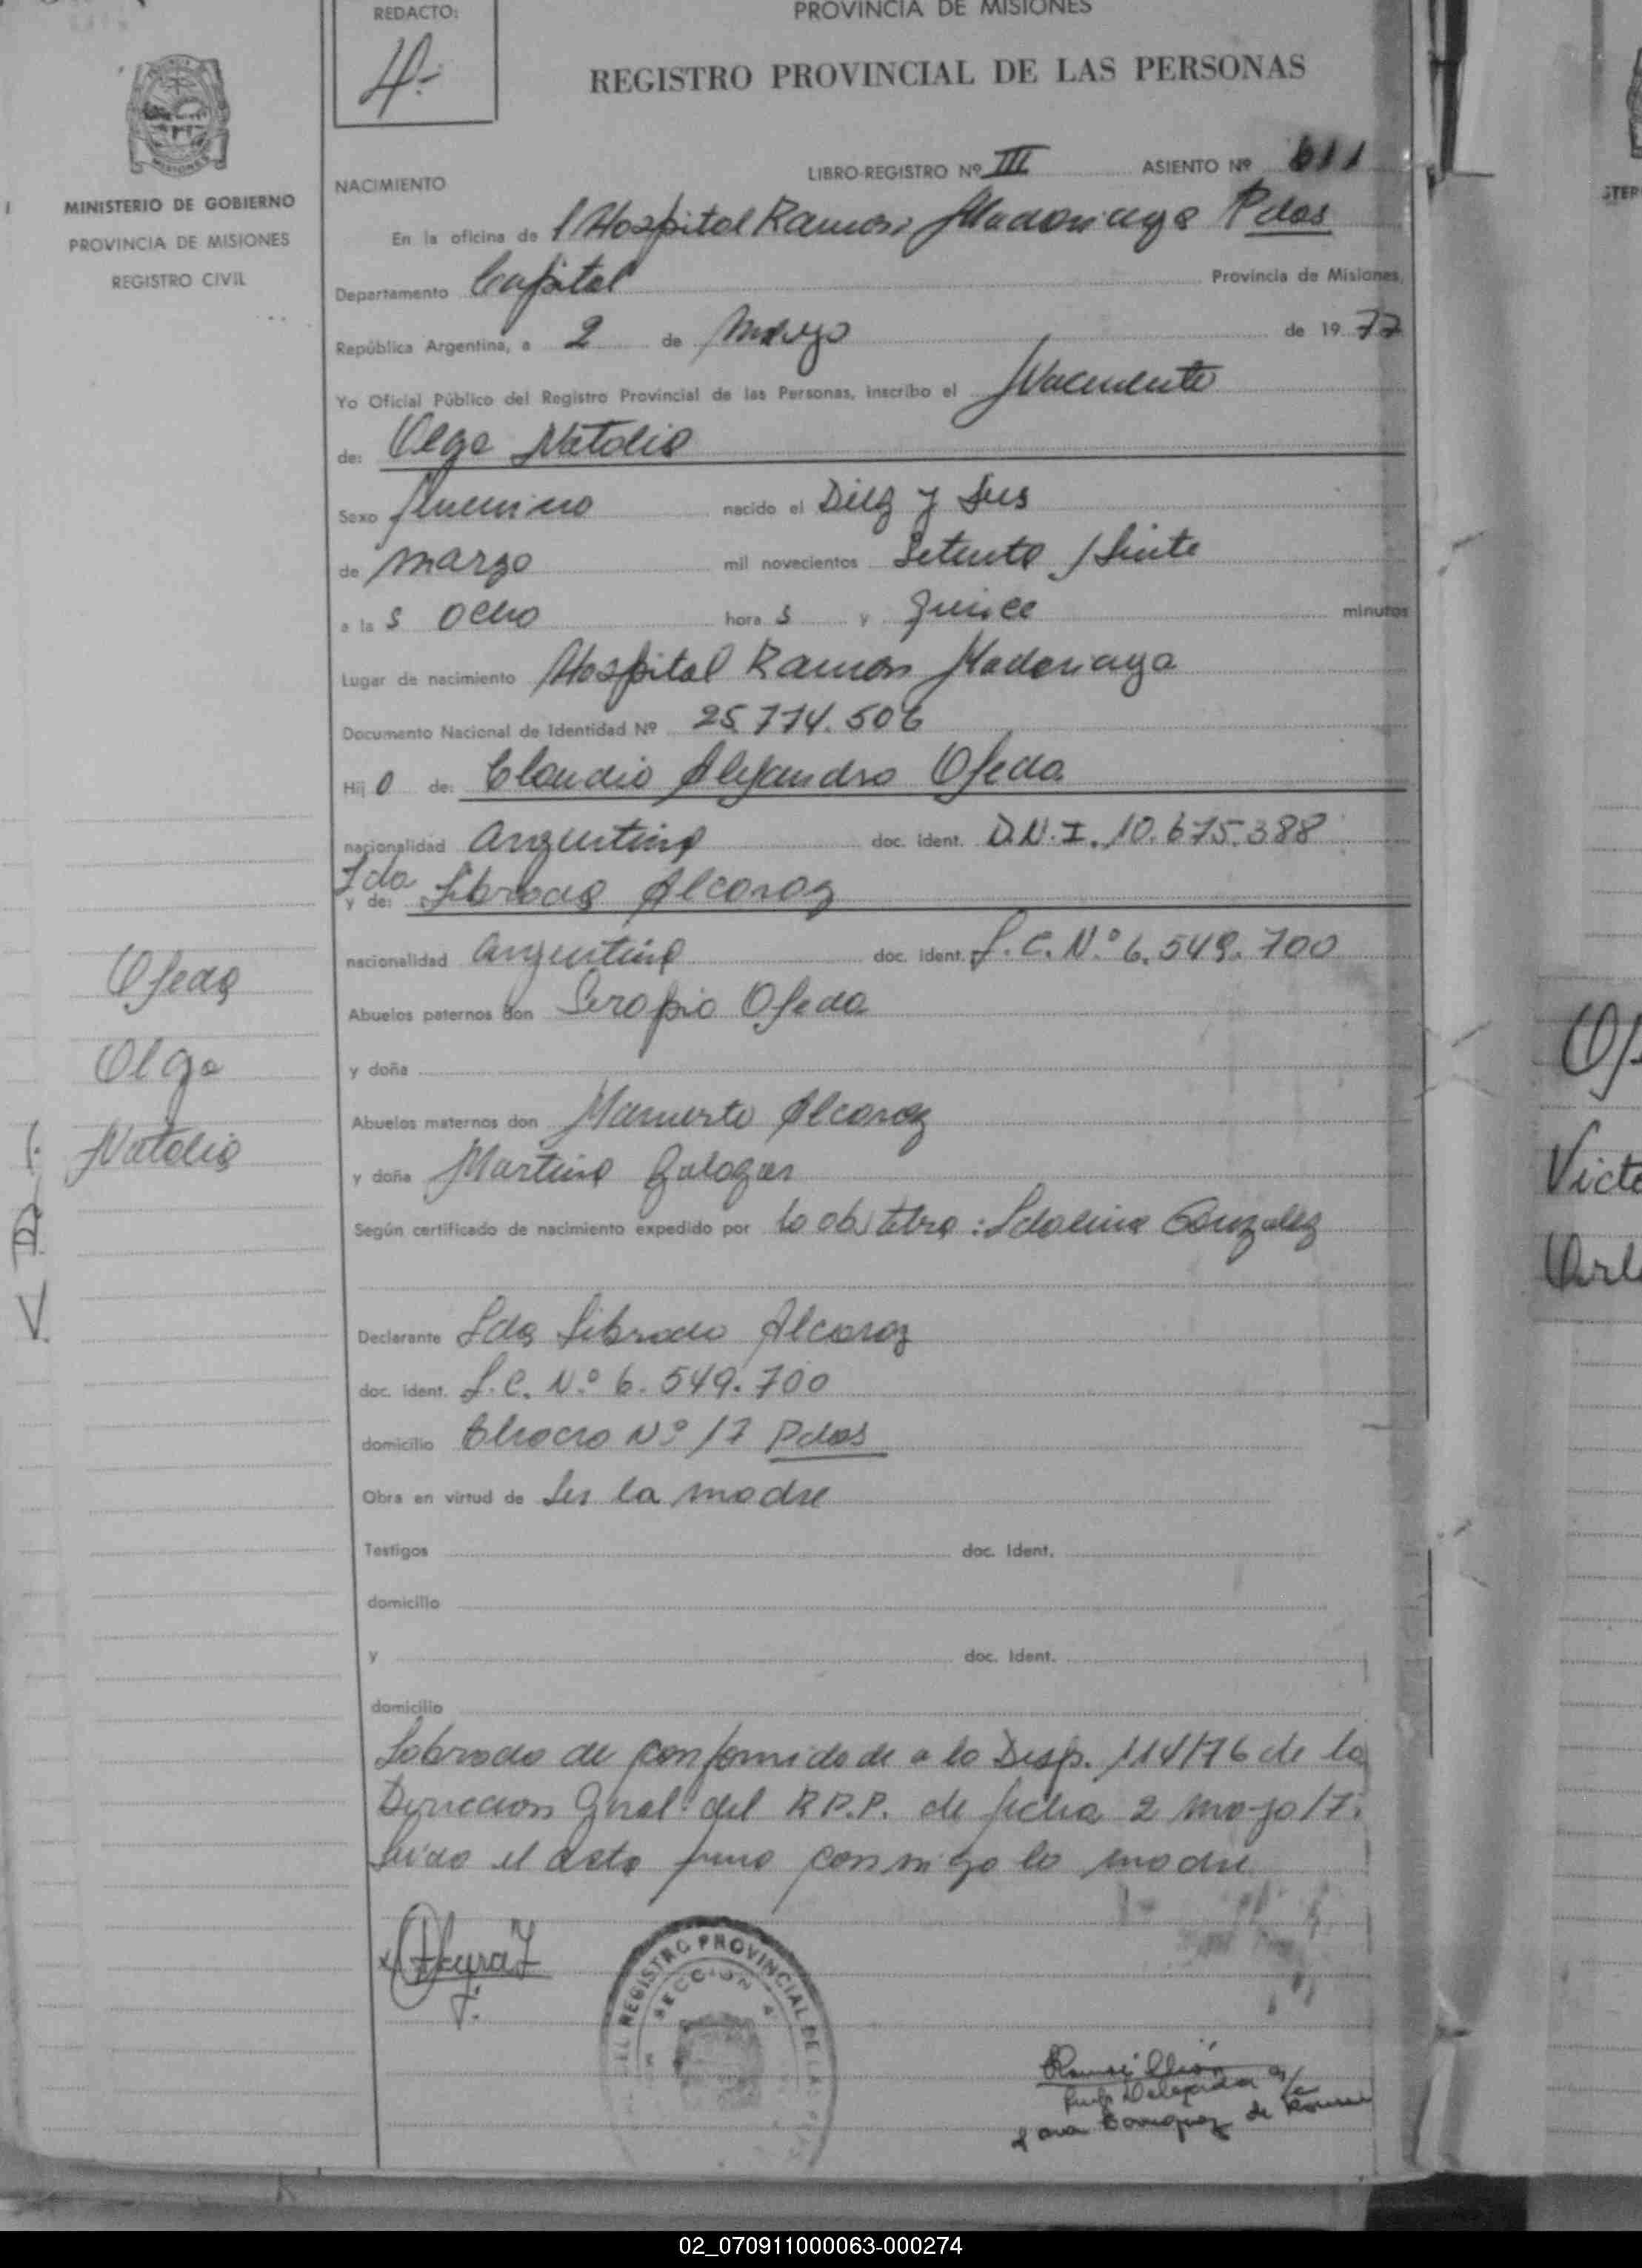 REDACTO:
4.-
PROVINCIA DE MISIONES
REGISTRO PROVINCIAL DE LAS PERSONAS
MINISTERIO DE GOBIERNO
PROVINCIA DE MISIONES
REGISTRO CIVIL
NACIMIENTO
LIBRO-REGISTRO Nº III ASIENTO Nº 611
En la oficina de l Hospital Ramon Madariaga Pdas
Departamento Capital Provincia de Misiones,
República Argentina, a 2 de mayo de 19 77
Yo Oficial Público del Registro Provincial de las Personas, inscribo el Nacimiento
de: Olga Natalia
Sexo femenino nacido el Diez y seis
de marzo mil novecientos Setenta y Siete
a la s ocho hora s y quince minutos
Lugar de nacimiento Hospital Ramon Madariaga
Documento Nacional de Identidad Nº 25.774.506
Hij o de: Claudio Alejandro Ojeda
nacionalidad argentina doc. ident. D.N.I. 10.675.388
y de: Ida Librada Alcaraz
nacionalidad argentina doc. ident. L.C. N.º 6.549.700
Abuelos paternos don Serapio Ojeda
y doña
Abuelos maternos don Mamerto Alcaraz
y doña Martina
Según certificado de nacimiento expedido por la obstetra: Idalina Gonzalez
Declarante Ida Librada Alcaraz
doc. ident. L.C. N.º 6.549.700
domicilio Chacra Nº 17 Pdas
Obra en virtud de ser la madre
Testigos doc. Ident.
domicilio
y doc. Ident.
domicilio
Labrada de conformidad a la Disp. 114/76 de la
Direccion Gral. del R.P.P. de fecha 2 mayo/7
Leida el acta firma conmigo la madre
Ojeda
Olga
Natalia
V. D.
REGISTRO PROVINCIAL DE LAS
SECCION
de
STER
Vict
02_070911000063-000274